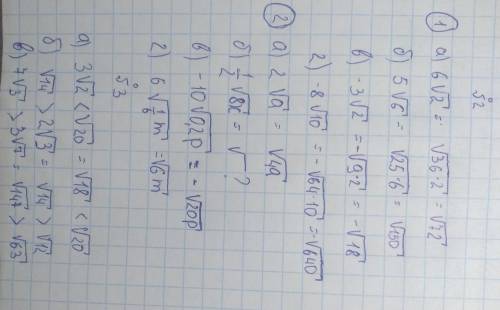 №2
① а) 6√2 = √36·2 = √72
б) 5√6 = √25·6 = √150
в) -3√2 = -√9·2 = -√18
г) -8√10 = -√64·10 = √640
② а) 2√a = √4a
б) ½√8x = √ ?
в) -10√0,2p = -√20p
г) 6√⅙m = √6m
№3
а) 3√2 < √20 = √18 < √20
б) √14 > 2√3 = √14 > √12
в) 7√3 > 3√7 = √147 > √63